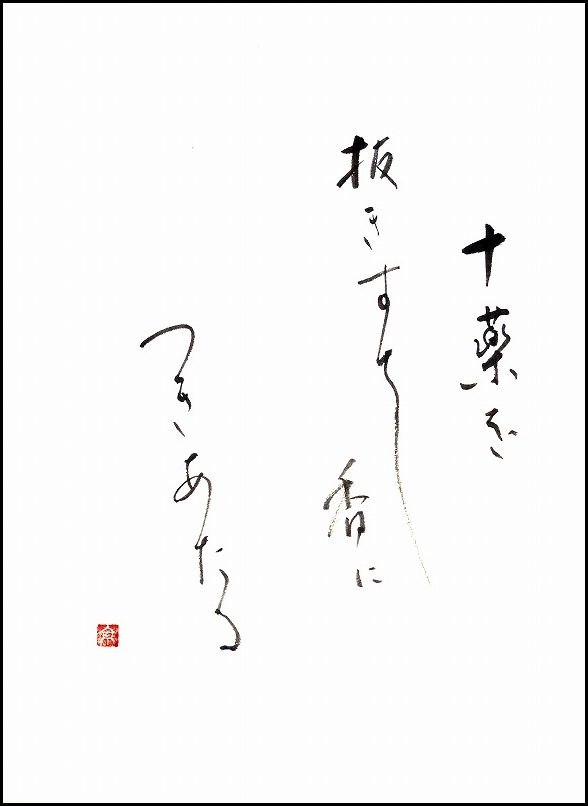 十薬を
抜きすてし香に
つきあたる